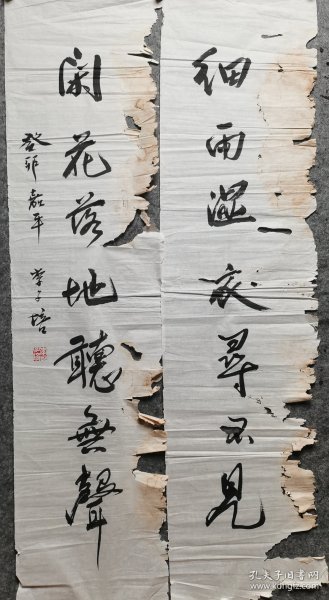 細雨濕衣尋不見
閑花落地聽無聲
癸卯嘉平
孔夫子旧书网